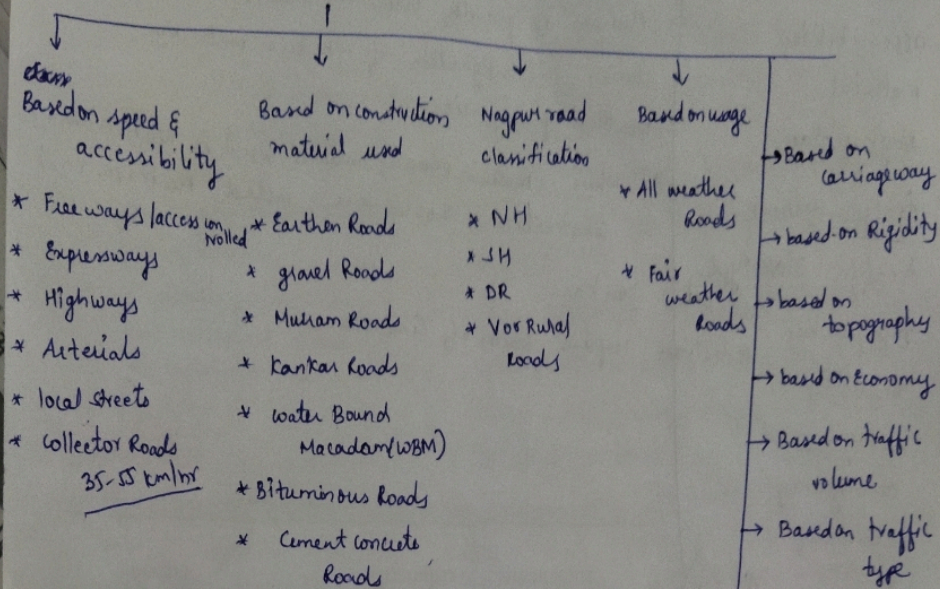 Based on speed &
accessibility
* Free ways / access controlled
* Expressways
* Highways
* Arterials
* local streets
* Collector Roads
35-55 km/hr
Based on construction
material used
* Earthen Roads
* gravel Roads
* Murram Roads
* Kankar Roads
* water Bound
Macadam (WBM)
* Bituminous Roads
* Cement concrete
Roads
Nagpur road
classification
* NH
* SH
* DR
* V or Rural
Roads
Based on usage
* All weather
Roads
* Fair
weather
Roads
→ Based on
Carriageway
→ based on Rigidity
→ based on
topography
→ based on Economy
→ Based on traffic
volume
→ Based on traffic
type